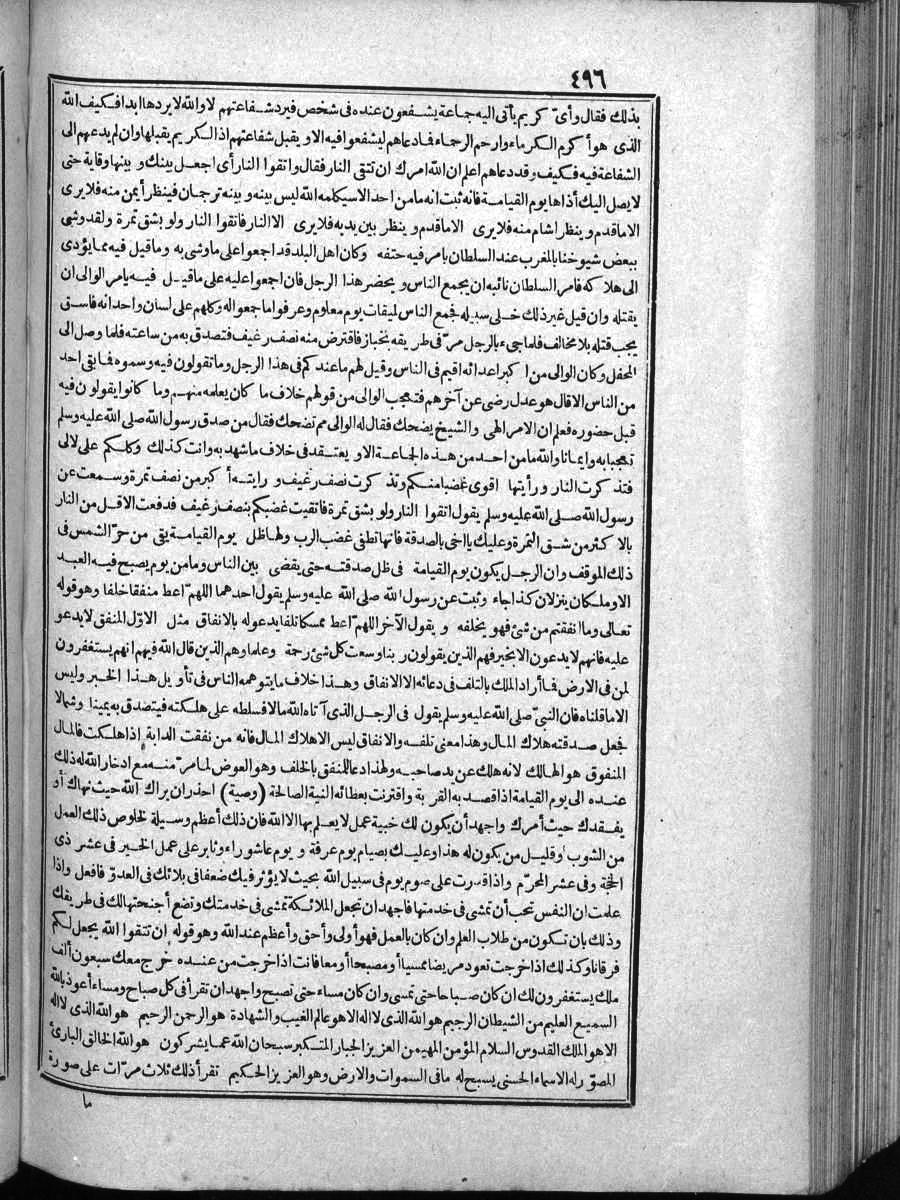 ٤٩٦
بذلك فقال وأى كريم يأتى اليه جماعة يشفعون عنده فى شخص فيرد شفاعتهم لا والله لا يردها ابدا فكيف الله
الذى هو أكرم الكرماء وارحم الرحماء فادعاهم ليشفعوا فيه الا ويقبل شفاعتهم اذ الكريم يقبلها وان لم يدعهم الى
الشفاعة فيه فكيف وقد دعاهم اعلم ان الله امرك ان تتقى النار فقال واتقوا النار أى اجعل بينك وبينها وقاية حتى
لا يصل اليك أذاها يوم القيامة فانه ثبت انه مامن احد الا سيكلمه الله ليس بينه وبينه ترجمان فينظر أيمن منه فلا يرى
الا ماقدم وينظر اشام منه فلا يرى الا ماقدم وينظر بين يديه فلا يرى الا النار فاتقوا النار ولو بشق تمرة ولقد وشى
ببعض شيوخنا بالمغرب عند السلطان بامر فيه حتفه وكان اهل البلد قد اجمعوا على ما وشى به وما قيل فيه مما يؤدى
الى هلاكه فامر السلطان نائبه ان يجمع الناس ويحضر هذا الرجل فان اجمعوا عليه على ماقيل فيه يامر الوالى ان
يقتله وان قيل غير ذلك خلى سبيله فجمع الناس لميقات يوم معلوم وعرفوا ما جمعوا له وكلهم على لسان واحد انه فاسق
يجب قتله بلا مخالف فلما جىء بالرجل مرّ فى طريقه بخباز فاقترض منه نصف رغيف فتصدق به من ساعته فلما وصل الى
المحفل وكان الوالى من اكبر اعدائه اقيم فى الناس وقيل لهم ما عندكم فى هذا الرجل وما تقولون فيه وسموه فما بقى احد
من الناس الا قال هو عدل رضى عن آخرهم فتعجب الوالى من قولهم خلاف ما كان يعلمه منهم وما كانوا يقولون فيه
قبل حضوره فعلم ان الامر الهى والشيخ يضحك فقال له الوالى مم تضحك فقال من صدق رسول الله صلى الله عليه وسلم
تعجبا به وايمانا والله مامن احد من هذه الجماعة الا ويعتقد فى خلاف ما شهد به وانت كذلك وكلكم على لا لى
فتذكرت النار ورأيتها اقوى غضبا منكم وتذكرت نصف رغيف ورايته أكبر من نصف تمرة وسمعت عن
رسول الله صلى الله عليه وسلم يقول اتقوا النار ولو بشق تمرة فاتقيت غضبكم بنصف رغيف فدفعت الاقل من النار
بالاكثر من شق التمرة وعليك يا اخى بالصدقة فانها تطفئ غضب الرب ولها ظل يوم القيامة يقى من حرّ الشمس فى
ذلك الموقف وان الرجل يكون يوم القيامة فى ظل صدقته حتى يقضى بين الناس وما من يوم يصبح فيه العبد
الا وملكان ينزلان كذا جاء وثبت عن رسول الله صلى الله عليه وسلم يقول احدهما اللهمّ اعط منفقا خلفا وهو قوله
تعالى وما انفقتم من شئ فهو يخلفه ويقول الآخر اللهمّ اعط ممسكا تلفا يدعو له بالانفاق مثل الاوّل المنفق لا يدعو
عليه فانهم لا يدعون الا بخير فهم الذين يقولون ربنا وسعت كل شئ رحمة وعلما وهم الذين قال الله فيهم انهم يستغفرون
لمن فى الارض فما أراد الملك بالتلف فى دعائه الا الانفاق وهذا خلاف ما يتوهمه الناس فى تأويل هذا الخبر وليس
الا ماقلناه فان النبىّ صلى الله عليه وسلم يقول فى الرجل الذى آتاه الله مالا فسلطه على هلكته فيتصدق به يمينا وشمالا
فجعل صدقته هلاك المال وهذا معنى تلفه والانفاق ليس الا هلاك المال فانه من نفقت الدابة اذا هلكت فالمال
المنفوق هو الهالك لانه هلك عن يد صاحبه ولهذا دعا للمنفق بالخلف وهو العوض لما مرّ منه مع ادخار الله له ذلك
عنده الى يوم القيامة اذا قصد به القربة واقترنت بعطائه النية الصالحة (وصية) احذر ان يراك الله حيث نهاك أو
يفقدك حيث أمرك واجهد أن يكون لك خبية عمل لا يعلم بها الا الله فان ذلك أعظم وسيلة لخلوص ذلك العمل
من الشوب وقليل من يكون له هذا وعليك بصيام يوم عرفة ويوم عاشوراء وثابر على عمل الخير فى عشر ذى
الحجّة وفى عشر المحرّم واذا قدرت على صوم يوم فى سبيل الله بحيث لا يؤثر فيك ضعفا فى بلائك فى العدوّ فافعل واذا
علمت ان النفس تحب أن تمشى فى خدمتها فاجهد ان تجعل الملائكة تمشى فى خدمتك وتضع أجنحتها لك فى طريقك
وذلك بان تكون من طلاب العلم وان كان بالعمل فهو أولى وأحق وأعظم عند الله وهو قوله ان تتقوا الله يجعل لكم
فرقانا وكذلك اذا خرجت تعود مريضا ممسيا أو مصبحا أو معافانت اذا خرجت من عنده خرج معك سبعون ألف
ملك يستغفرون لك ان كان صباحا حتى تمسى وان كان مساء حتى تصبح واجهد ان تقرأ فى كل صباح ومساء أعوذ بالله
السميع العليم من الشيطان الرجيم هو الله الذى لا اله الا هو عالم الغيب والشهادة هو الرحمن الرحيم هو الله الذى لا اله
الا هو الملك القدوس السلام المؤمن المهيمن العزيز الجبار المتكبر سبحان الله عما يشركون هو الله الخالق البارئ
المصوّر له الاسماء الحسنى يسبح له مافى السموات والارض وهو العزيز الحكيم تقرأ ذلك ثلاث مرّات على صورة
ما